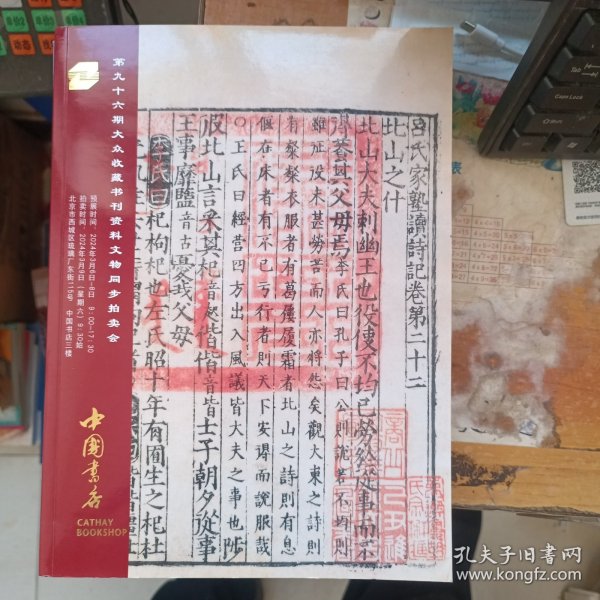 第九十六期大众收藏书刊资料文物同步拍卖会
预展时间：2024年3月6日-8日 9：00-17：30
拍卖时间：2024年3月9日（星期六）9：30始
北京市西城区琉璃厂东街115号 中国书店三楼
中國書店
CATHAY
BOOKSHOP
呂氏家塾讀詩記卷第二十二
北山之什
北山大夫刺幽王也役使不均已勞於從事而不
得養其父母焉李氏曰孔子曰公則說若不均則
雖征役未甚勞苦而人亦將怨矣觀大東之詩則
有粲粲衣服者有葛屨履霜者北山之詩則有息
偃在牀者有不已于行者則天下安得而說服哉
○王氏曰經營四方出入風議皆大夫之事也陟
彼北山言采其杞音起偕偕音皆士子朝夕從事
王事靡盬音古憂我父母
李氏曰杞枸杞也左氏昭十年有圃生之杞杜
孔夫子旧书网
www.kongfz.com